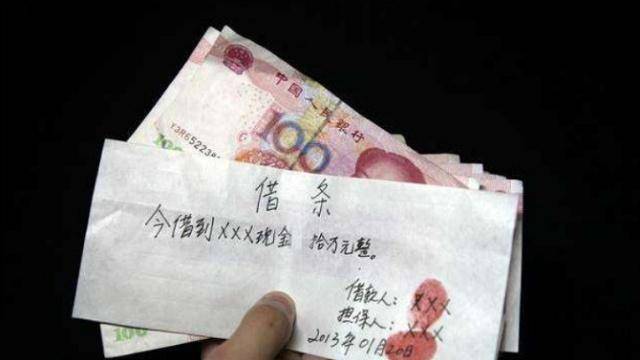 中国人民银行
100
Y3R65223
借条
今借到XXX现金 拾万元整。
借款人：XXX
担保人：XXX
2013年01月20日
100